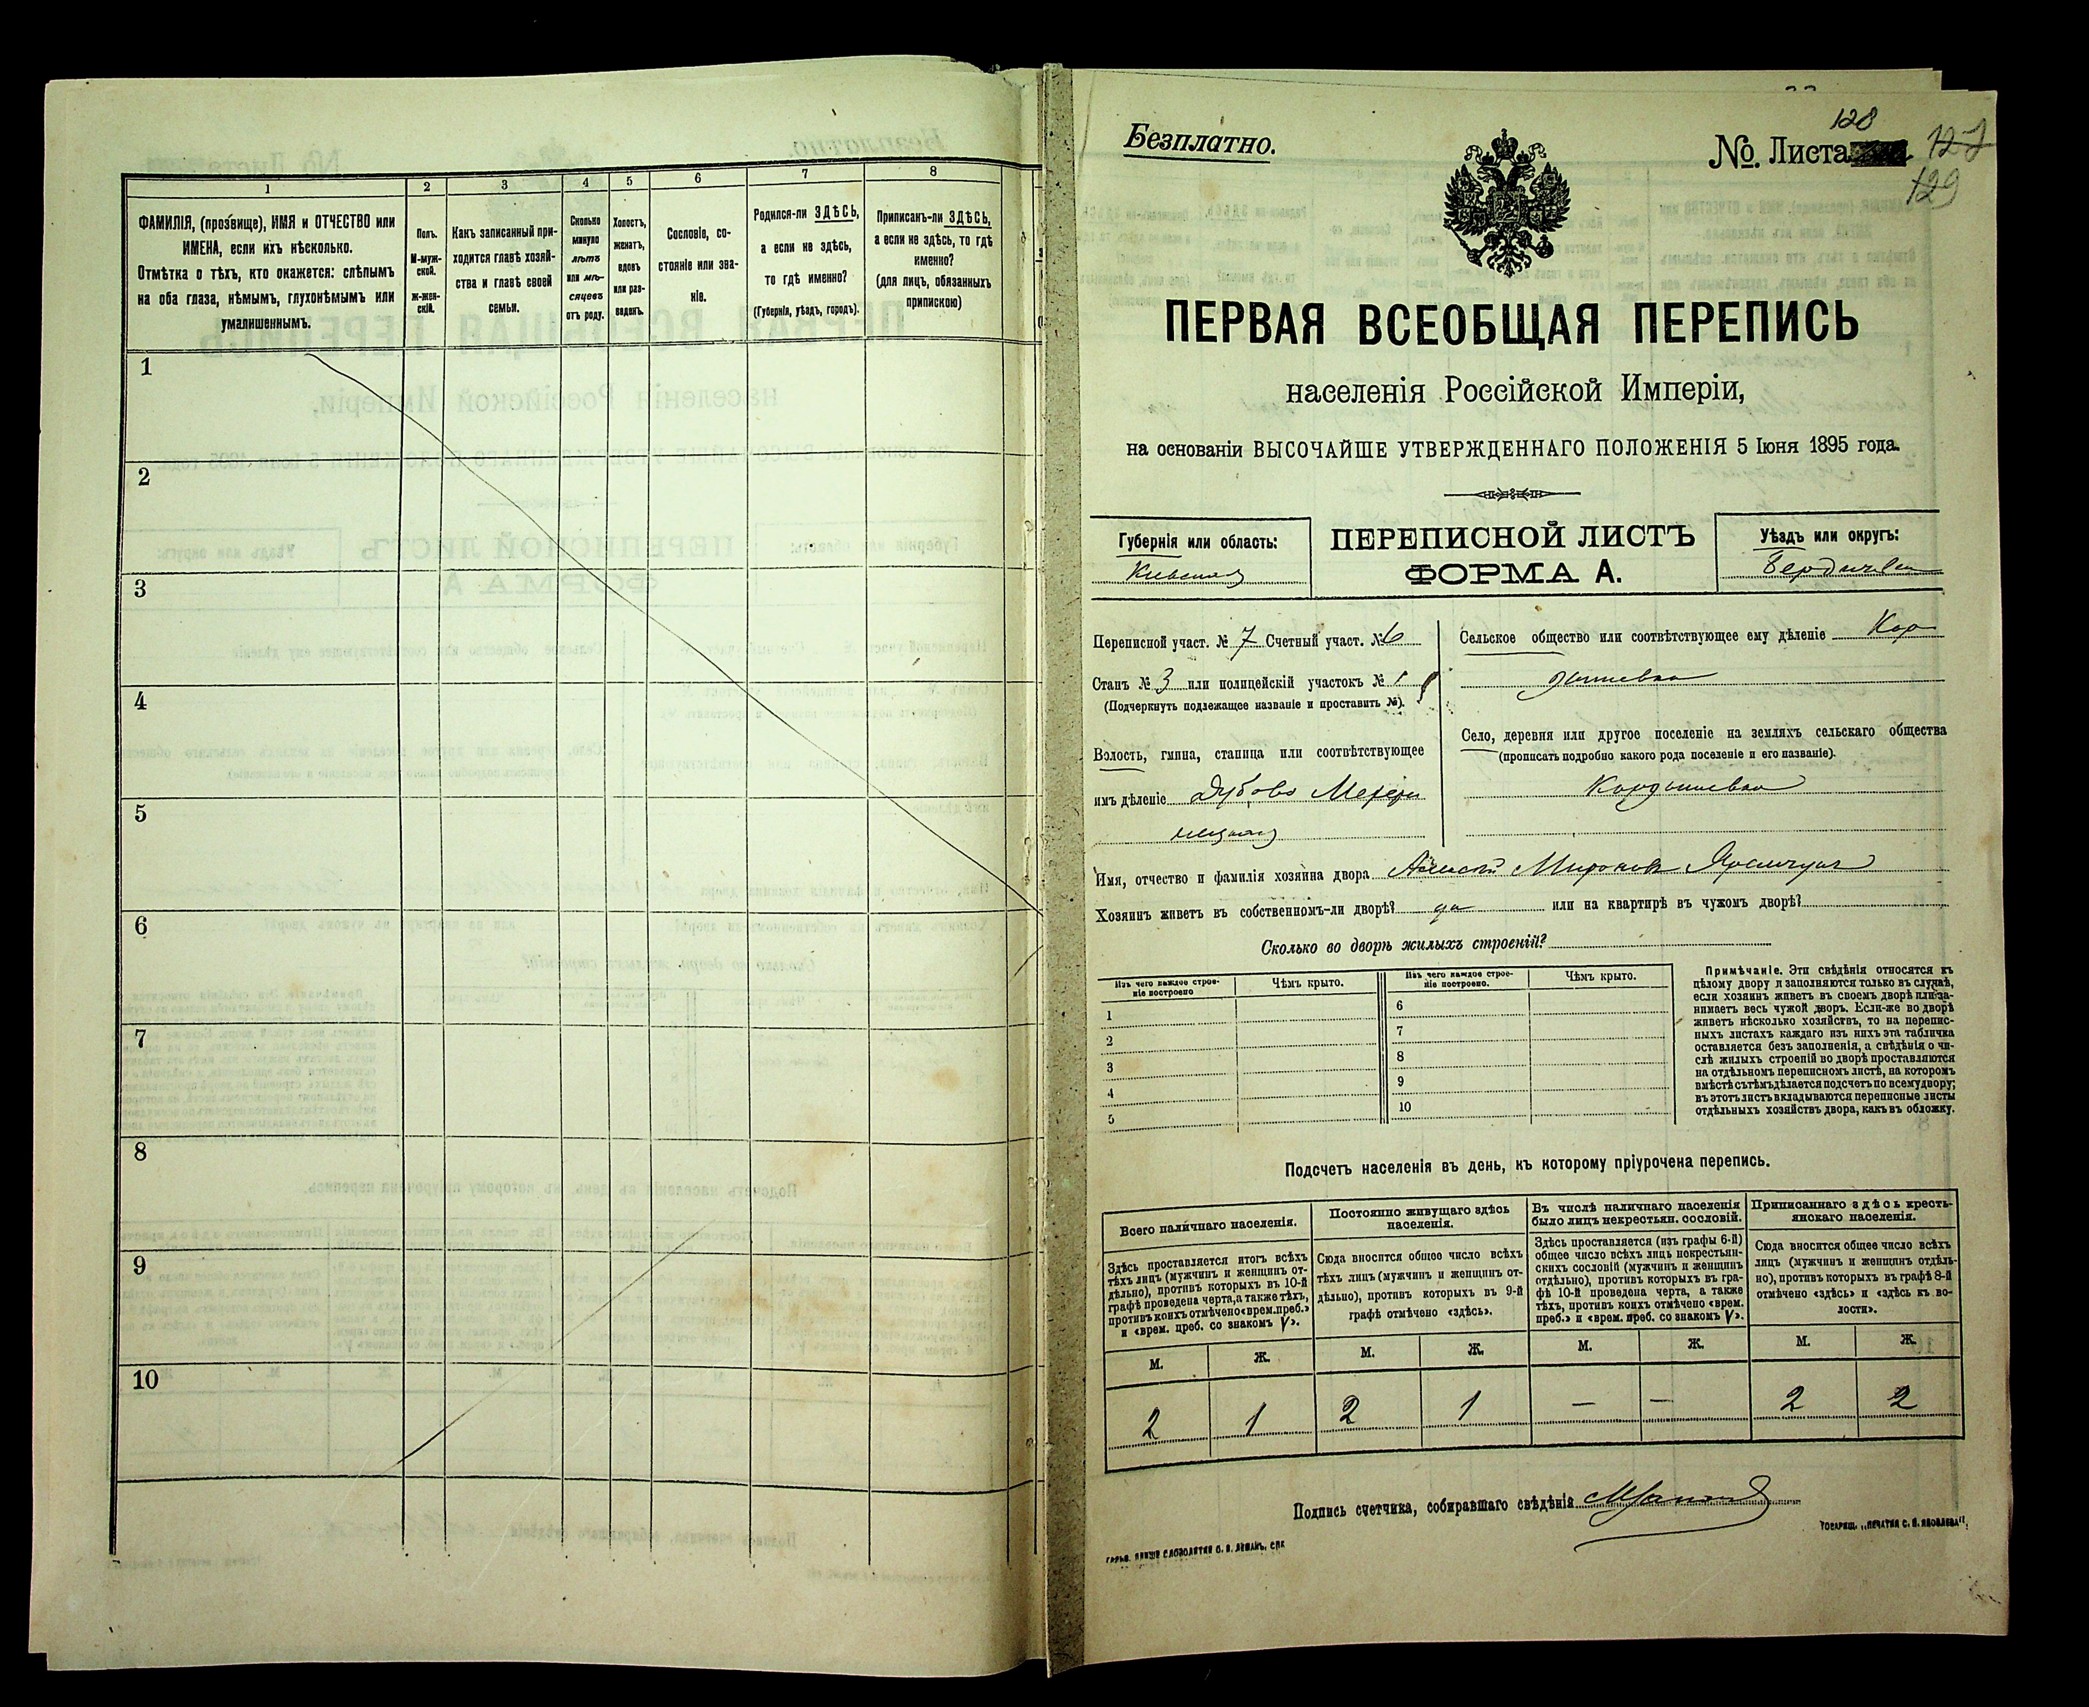 1 2 3 4 5 6 7 8
ФАМИЛІЯ, (прозвище), ИМЯ и ОТЧЕСТВО или
ИМЕНА, если ихъ нѣсколько.
Отмѣтка о тѣхъ, кто окажется: слѣпымъ
на оба глаза, нѣмымъ, глухонѣмымъ или
умалишеннымъ.
Полъ.
М-муж-
ской.
Ж-жен-
скій.
Какъ записанный при-
ходится главѣ хозяй-
ства и главѣ своей
семьи.
Сколько
минуло
лѣтъ
или мѣ-
сяцевъ
отъ роду.
Холостъ,
женатъ,
вдовъ
или раз-
веденъ.
Сословіе, со-
стояніе или зва-
ніе.
Родился-ли ЗДѢСЬ,
а если не здѣсь,
то гдѣ именно?
(Губернія, уѣздъ, городъ).
Приписанъ-ли ЗДѢСЬ,
а если не здѣсь, то гдѣ
именно?
(для лицъ, обязанныхъ
припискою)
1
2
3
4
5
6
7
8
9
10
Безплатно.
128
№. Листа
129
ПЕРВАЯ ВСЕОБЩАЯ ПЕРЕПИСЬ
населенія Россійской Имперіи,
на основаніи ВЫСОЧАЙШЕ УТВЕРЖДЕННАГО ПОЛОЖЕНІЯ 5 Іюня 1895 года.
Губернія или область:
Кіевская
ПЕРЕПИСНОЙ ЛИСТЪ
ФОРМА А.
Уѣздъ или округъ:
Бердичевск
Переписной участ. № 7 Счетный участ. № 6
Станъ № 3 или полицейскій участокъ №
(Подчеркнуть подлежащее названіе и проставить №).
Волость, гмина, станица или соотвѣтствующее
имъ дѣленіе Дубово Межери
нецкая
Сельское общество или соотвѣтствующее ему дѣленіе Кор
дышевка
Село, деревня или другое поселеніе на земляхъ сельскаго общества
(прописать подробно какого рода поселеніе и его названіе).
Кордышевка
Имя, отчество и фамилія хозяина двора Алексѣй Мироновъ
Хозяинъ живетъ въ собственномъ-ли дворѣ? да или на квартирѣ въ чужомъ дворѣ?
Сколько во дворѣ жилыхъ строеній?
Изъ чего каждое строе-
ніе построено
Чѣмъ крыто.
Изъ чего каждое строе-
ніе построено.
Чѣмъ крыто.
1 6
2 7
3 8
4 9
5 10
Примѣчаніе. Эти свѣдѣнія относятся къ
цѣлому двору и заполняются только въ случаѣ,
если хозяинъ живетъ въ своемъ дворѣ или за-
нимаетъ весь чужой дворъ. Если-же во дворѣ
живетъ нѣсколько хозяйствъ, то на перепис-
ныхъ листахъ каждаго изъ нихъ эта табличка
оставляется безъ заполненія, а свѣдѣнія о чи-
слѣ жилыхъ строеній во дворѣ проставляются
на отдѣльномъ переписномъ листѣ, на которомъ
вмѣстѣ съ тѣмъ дѣлается подсчетъ по всему двору;
въ этотъ листъ вкладываются переписные листы
отдѣльныхъ хозяйствъ двора, какъ въ обложку.
Подсчетъ населенія въ день, къ которому пріурочена перепись.
Всего наличнаго населенія.
Здѣсь проставляется итогъ всѣхъ
тѣхъ лицъ (мужчинъ и женщинъ от-
дѣльно), противъ которыхъ въ 10-й
графѣ проведена черта, а также тѣхъ,
противъ коихъ отмѣчено «врем. преб.»
и «врем. преб. со знакомъ V».
Постоянно живущаго здѣсь
населенія.
Сюда вносится общее число всѣхъ
тѣхъ лицъ (мужчинъ и женщинъ от-
дѣльно), противъ которыхъ въ 9-й
графѣ отмѣчено «здѣсь».
Въ числѣ наличнаго населенія
было лицъ некрестьян. сословій.
Здѣсь проставляется (изъ графы 6-й)
общее число всѣхъ лицъ некрестьян-
скихъ сословій (мужчинъ и женщинъ
отдѣльно), противъ которыхъ въ гра-
фѣ 10-й проведена черта, а также
тѣхъ, противъ коихъ отмѣчено «врем.
преб.» и «врем. преб. со знакомъ V».
Приписаннаго здѣсь кресть-
янскаго населенія.
Сюда вносится общее число всѣхъ
лицъ (мужчинъ и женщинъ отдѣль-
но), противъ которыхъ въ графѣ 8-й
отмѣчено «здѣсь» и «здѣсь къ во-
лости».
М. Ж. М. Ж. М. Ж. М. Ж.
2 1 2 1 — — 2 2
Подпись счетчика, собиравшаго свѣдѣнія
ТОВАРИЩ. „ПЕЧАТНЯ С. П. ЯКОВЛЕВА".